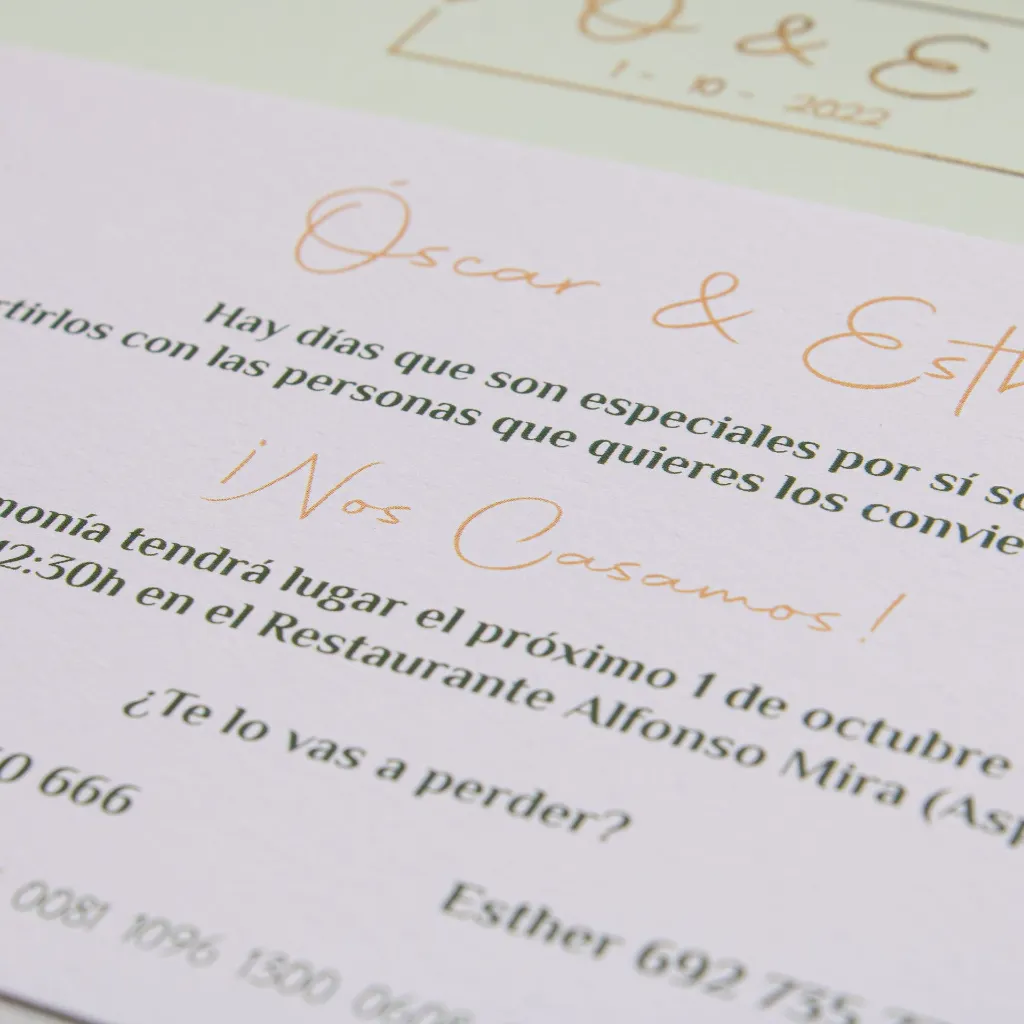 O & E
1 - 10 - 2022
Óscar & Esth
Hay días que son especiales por sí so
rtirlos con las personas que quieres los convie
¡Nos Casamos!
monía tendrá lugar el próximo 1 de octubre
12:30h en el Restaurante Alfonso Mira (Asp
¿Te lo vas a perder?
0 666
Esther 692 735
0081 1096 1300 0608